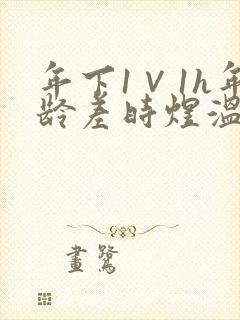 年下1V1h年
龄差时煌温
畫鷺